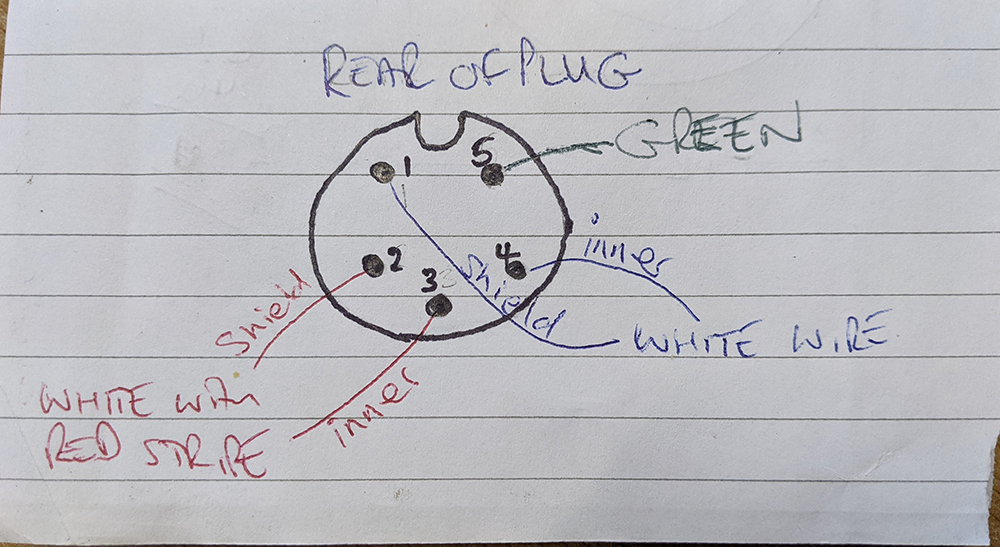 REAR OF PLUG
1
5
GREEN
2
3
4
inner
Shield
Shield
WHITE WIRE
WHITE WITH
RED STRIPE
inner